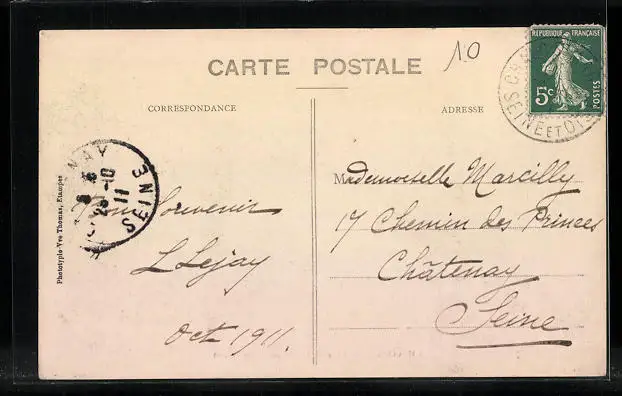 CARTE POSTALE
10
REPUBLIQUE FRANÇAISE
5c
POSTES
SEINE ET OISE
CORRESPONDANCE
ADRESSE
NAY
25-10
11
SEINE
Souvenir
L Lejay
Oct 1911.
Mademoiselle Marcilly
17 Chemin des Princes
Châtenay
Seine
Phototypie Vve Thomas, Etampes